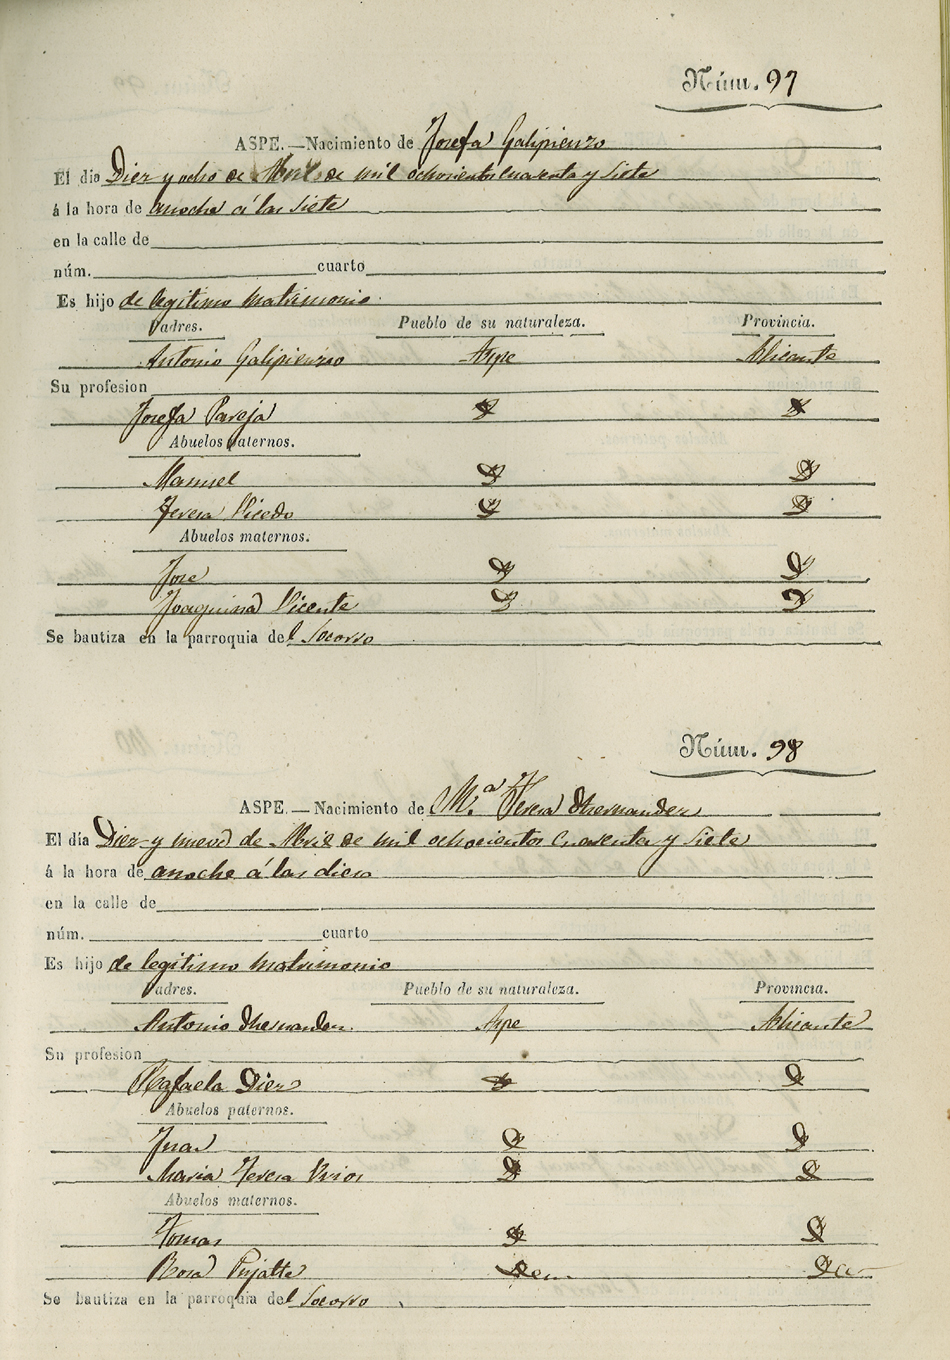 Núm. 97
ASPE.—Nacimiento de Josefa Galipienzo
El dia Diez y ocho de Abril de mil ochocientos cuarenta y siete
á la hora de anoche á las siete
en la calle de
núm. cuarto
Es hijo de legitimo matrimonio
Padres. Pueblo de su naturaleza. Provincia.
Antonio Galipienzo Aspe Alicante
Su profesion
Josefa Pareja
Abuelos paternos.
Manuel
Teresa Vicedo
Abuelos maternos.
Jose
Joaquina Vicente
Se bautiza en la parroquia del Socorro
Núm. 98
ASPE.—Nacimiento de M.ª Teresa Hernandez
El día Diez y nueve de Abril de mil ochocientos cuarenta y siete
á la hora de anoche á las diez
en la calle de
núm. cuarto
Es hijo de legitimo matrimonio
Padres. Pueblo de su naturaleza. Provincia.
Antonio Hernandez Aspe Alicante
Su profesion
Rafaela Diez
Abuelos paternos.
Juan
Maria Teresa
Abuelos maternos.
Tomas
Rosa Pujalte
Se bautiza en la parroquia del Socorro